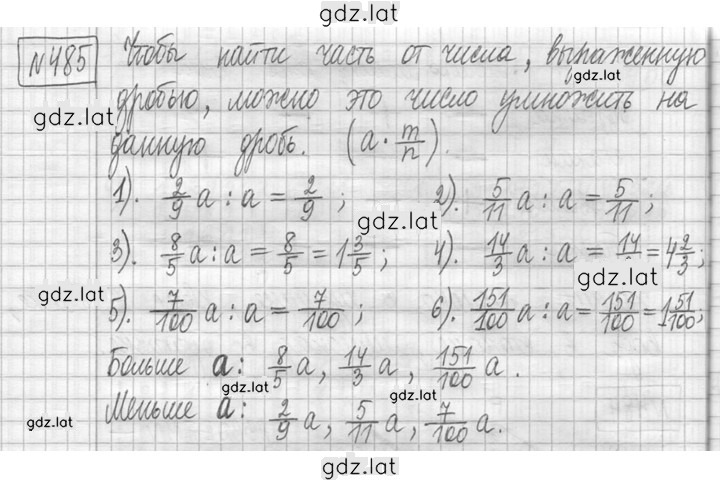 gdz.lat
№485 Чтобы найти часть от числа, выраженную
gdz.lat
дробью, можено это число умножить на
gdz.lat
данную дробь. (a · m/n).
1). 2/9 a : a = 2/9 ; 2). 5/11 a : a = 5/11 ;
gdz.lat
3). 8/5 a : a = 8/5 = 1 3/5 ; 4). 14/3 a : a = 14/ = 4 2/3 ;
gdz.lat
gdz.lat
5). 7/100 a : a = 7/100 ; 6). 151/100 a : a = 151/100 = 1 51/100 ;
Больше a: 8/5 a, 14/3 a, 151/100 a .
gdz.lat gdz.lat
Меньше a: 2/9 a, 5/11 a, 7/100 a.
gdz.lat
gdz.lat